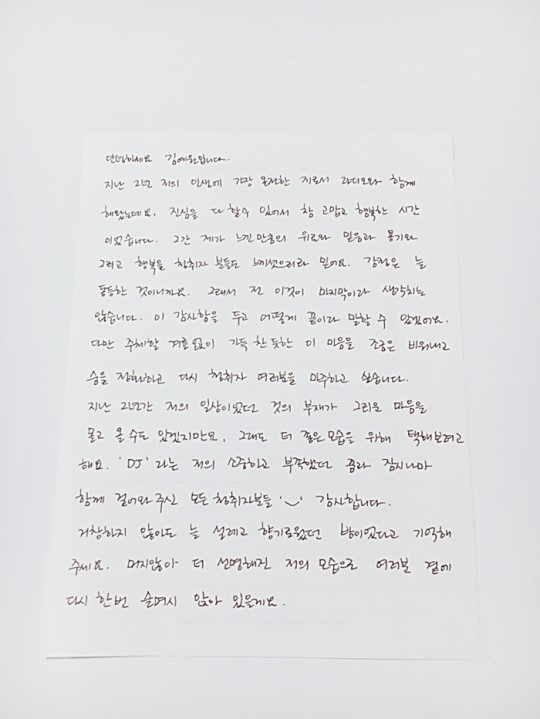 안녕하세요 김예원입니다.
지난 2년 저의 인생에 가장 온전한 지표서 라디오와 함께
해왔는데요. 진심을 다 할수 있어서 참 고맙고 행복한 시간
이었습니다. 그간 제가 느낀만큼의 위로와 믿음과 용기와
그리고 행복을 청취자 분들도 느끼셨으리라 믿어요. 감정은 늘
동등한 것이니까요. 그래서 전 이것이 마지막이라 생각치는
않습니다. 이 감사함을 두고 어떻게 끝이라 말할 수 있겠어요.
다만 주체할 겨를 없이 가득 찬 듯한 이 마음을 조금은 비워내고
숨을 정화하고 다시 청취자 여러분을 마주하고 싶습니다.
지난 2년간 저의 일상이었던 것의 부재가 그리운 마음을
몰고 올 수도 있겠지만요, 그래도 더 좋은 모습을 위해 택해보려고
해요. 'DJ' 라는 저의 소중하고 부족했던 꿈과 잠시나마
함께 걸어와 주신 모든 청취자분들 '◡' 감사합니다.
거창하지 않아도 늘 설레고 향기로웠던 밤이었다고 기억해
주세요. 머지않아 더 선명해진 저의 모습으로 여러분 곁에
다시 한번 슬며시 앉아 있을게요.